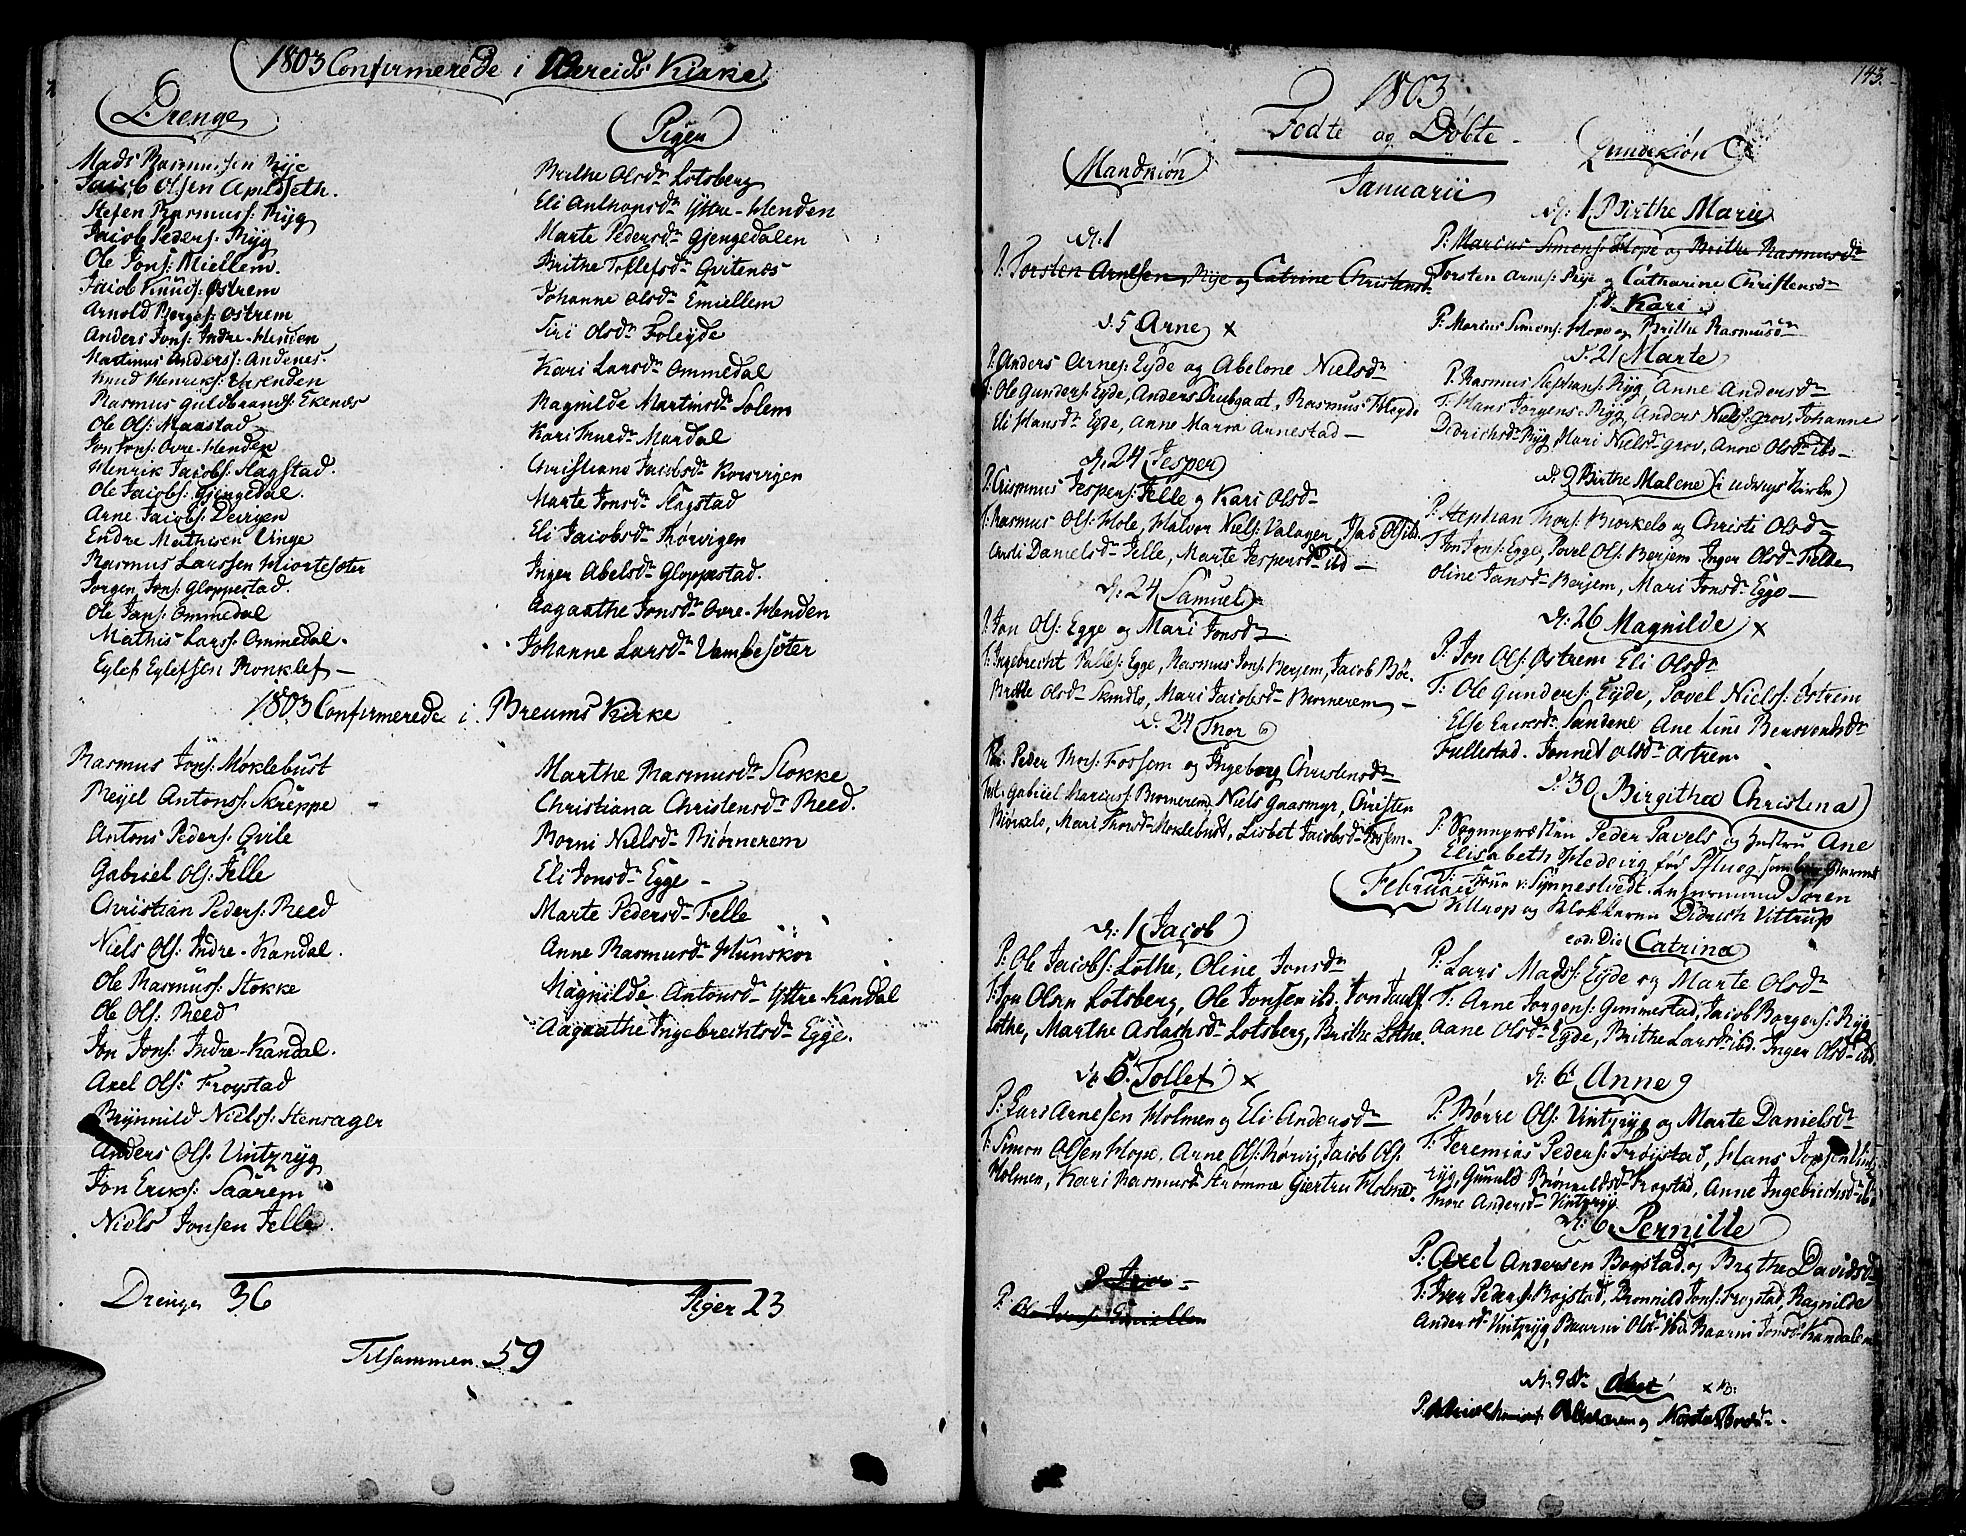 1803 Confirmerede i Vereids Kirke
Drenge
Mads Rasmussen Rÿe
Jacob Olsen Apildseth.
Stefen Rasmuss: Rÿg
Jacob Peders: Rÿg
Ole Jons: Miellem.
Jacob Knuds: Østrem
Arnold Børges: Ostrem
Anders Jons: Indre-Henden
Martinus Anderss: Andenes.
Knud Henriks: Ursenden
Rasmus Guldbrands: Ekenæs
Ole Ols: Maastad
Jon Jons: Ovre-Henden
Henrik Jacobs: Slagstad.
Ole Jacobs: Gjengedal.
Arne Jacobs: Devigen
Endre Mathisen Vinge
Rasmus Larssen Hiortesøter
Jorgen Jons: Gloppestad.
Ole Jans: Ommedal
Mathis Larss: Ommedal.
Eylef Eylefsen Ronklef
Pigen
Brithe Olsdr Lotsberg
Eli Anthonsdr Ÿttre-Henden
Marte Pedersdr Gjengedalen
Brithe Tollefsdr Qvitenæs
Johanne Olsdr Emiellem
Siri Olsdr Foleyde
Kari Larsdr Ommedal
Ragnilde Martinsdr Solem
Kari Truedr Mardal
Christiane Jacobsdr Korsvigen
Marte Jonsdr Slagstad
Eli Jacobsdr Rørvigen
Inger Abelsdr Gloppestad.
Aagaathe Jonsdr Ovre-Henden
Johanne Larsdr Vambesøter
1803 Confirmerede i Breums Kirke
Rasmus Jons: Møklebust
Reÿel Antonss: Skreppe
Antons Peders: Qvile
Gabriel Ols: Felle
Christian Peders: Reed
Niels Ols: Indre-Kandal.
Ole Rasmuss: Stokke
Ole Ols: Reed
Jon Jons: Indre-Kandal.
Axel Ols: Froystad
Brÿnnild Nielss: Stensager
Anders Ols: Vintzrÿg
Jon Eriks: Saarem
Niels Jonsen Felle.
Marthe Rasmusdr Stokke
Christiana Christensdr Reed.
Borni Nielsdr Biørnerem
Eli Jonsdr Egge
Marte Pedersdr Felle
Anne Rasmusdr Hunskor
Magnilde Antonsdr Ÿttre-Kandal
Aagaathe Ingebrechtsdr Egge.
Drenge 36
Piger 23
Tilsammen 59
145.
1803
Fødte og Døbte
Mandkiøn
Januarii
D: 1
P: Torsten Arnesen Rÿe og Catrine Christensdr
d. 5 Arne x
P: Anders Arnes: Eyde og Abelone Nielsdr
T: Ole Gunders: Eyde, Anders Drubgaat, Rasmus Foleyde
Eli Hansdr Eyde, Anne Marra Arnestad
D. 24 Jesper
P: Crispinus Jespers: Felle og Kari Olsdr
T: Rasmus Ols: Hole, Halvor Niels: Valager, Ole Ols ib.
Christi Danielsdr Felle, Marte Jespersdr ibd
D. 24 Samuel
P: Jon Ols: Egge og Mari Jonsdr
T: Ingebrecht Palless: Egge, Rasmus Jons: Berjem, Jacob Bøe
Brithe Olsdr Skindlo, Mari Jacobsdr Biornerem
D. 24 Thor
P: Peder Thors: Fossem og Ingeborg Christensdr
Test. Gabriel Marcuss: Biornerem, Niels Gaasmyr, Christen
Biørkelo, Mari Thorsdr Moklebust, Lisbet Jacobsdr Fossem
Februar
D. 1 Jacob
P: Ole Jacobs: Lothe, Oline Jonsdr
T: Jon Olsen Lotsberg, Ole Jonsen ibd. Jon Paulss
Lothe, Marthe Aslachsdr Lotsberg, Brithe Lothe.
D. 6 Tollef x
P: Lars Arnesen Holmen og Eli Andersdr
T: Simon Olsen Hope, Arne Ols: Rørvig, Jacob Ols:
Holmen, Kari Rasmusdr Strømme Giertru Holmen.
P: Ole Jons: Emiellem
Qvindekiøn
D: 1 Birthe Marie
P: Marcus Simons: Hope og Brithe Rasmusdr
Torsten Arnes: Rÿe og Catharine Christensdr
Kari
P: Marcus Simons: Hope og Brithe Rasmusdr
d. 21 Marte
P. Rasmus Stephans: Rÿg, Anne Andersdr
T: Hans Jorgens: Rÿg, Anders Niels: Grov, Johanne
Didrichsdr Rÿg, Mari Nielsdr Grov, Anne Olsdr ibd
D. 9 Birthe Malene (i Udvigs Kirke)
P: Stephan Thors: Biorkelo og Christi Olsdr
T: Jon Jons: Egge, Povel Ols: Berjem Inger Olsdr Felde
Oline Jansdr Berjem, Mari Jonsdr Egge
D. 26 Magnilde x
P. Jon Ols: Ostrem Eli Olsdr
T: Ole Gunders: Eyde, Pavel Nielss: Østrem
Else Ericsdr Sandene Ane Line Bensvendsdr
Fullestad. Jonnet Olsdr Ostrem
d. 30 Birgithe Christina
P: Sognepræsten Peder Pavels og Hustru Ane
Elisabeth Hedevig fød Pflueg
T: Frue v: Synnestvedt. Lensmand Søren
Vittrup og Klokkeren Didrich Vittrup
eod: Die Catrina
P: Lars Madss: Eyde og Marte Olsdr
T: Arne Jorgens: Gimmestad, Jacob Borgers: Ryg
Aane Olsdr Eyde, Brithe Larsdr ibd. Inger Olsdr ibd.
D. 6 Anne
P: Børre Ols: Vintzrÿg og Marte Danielsdr
T: Jeremias Peders: Froystad, Hans Jonsen Vintz
ryg, Gunild Brønnildsdr Froystad, Anne Ingebrichtsdr ibd
Thore Andersdr Vintzryg
D: 6 Pernille
P: Axel Andersen Bogstad og Brythe Davidsdr
T: Iver Peders: Rogstad, Bronnild Jons: Frogstad, Ragnilde
Andersdr Vintzryg, Baarni Olsdr ibd. Baarni Jonsdr Kandalen
D. 9de